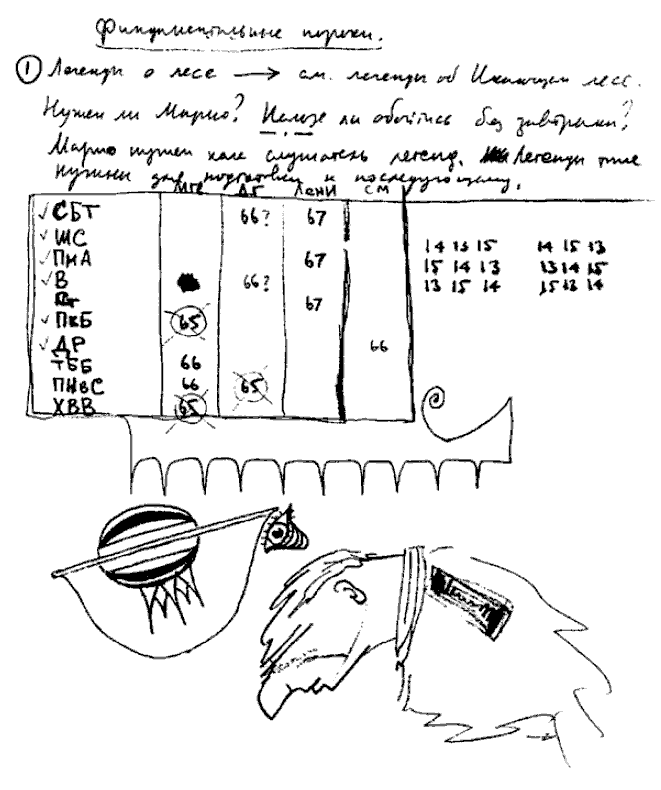 Фундаментальные пороки.
① Легенды о лесе → см. легенды об Икающем лесе.
Нужен ли Марио? Нельзя ли обойтись без завтрака?
Марио нужен как слушатель легенд. Легенды тоже
нужны для подготовки к последующему.
МГГ ДГ Лени СМ
✓ СБТ 66? 67
✓ ШС
✓ ПмА 67
✓ В 66?
67
✓ ПкБ 65
✓ ДР 66
ТББ 66
ПНвС 66 65
ХВВ 65
14 13 15 14 15 13
15 14 13 13 14 15
13 15 14 15 13 14